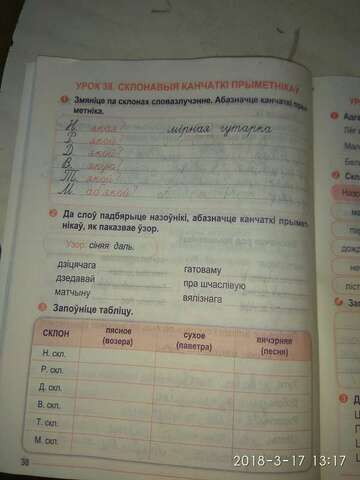 УРОК 38. СКЛОНАВЫЯ КАНЧАТКІ ПРЫМЕТНІКАЎ
1 Змяніце па склонах словазлучэнне. Абазначце канчаткі прыметніка.
Н. якая? мірная гутарка
Р. якой?
Д. якой?
В. якую?
Т. якой?
М. аб якой?
2 Да слоў падбярыце назоўнікі, абазначце канчаткі прыметнікаў, як паказвае ўзор.
Узор: сіняя даль.
дзіцячага гатоваму
дзедавай пра шчаслівую
матчыну вялізнага
3 Запоўніце табліцу.
СКЛОН лясное (возера) сухое (паветра) вячэрняя (песня)
Н. скл.
Р. скл.
Д. скл.
В. скл.
Т. скл.
М. скл.
38
2018-3-17 13:17